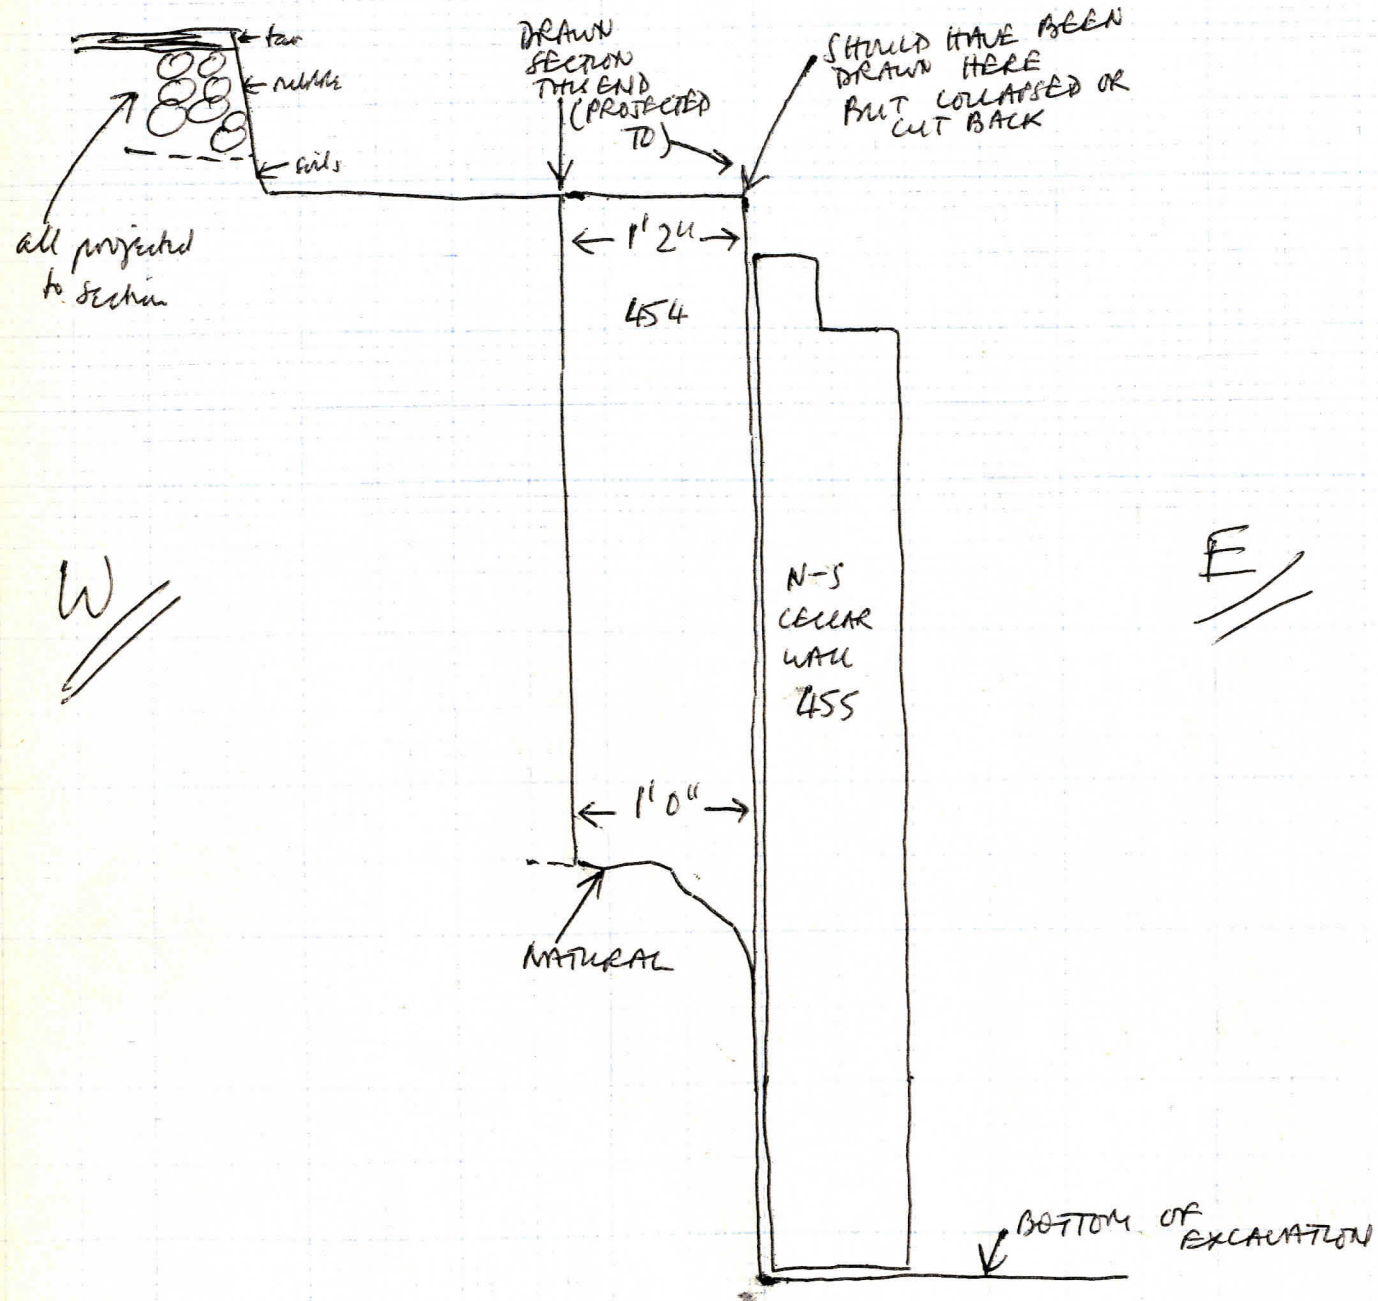 tar
rubble
soils
all projected
to section
DRAWN
SECTION
THIS END
(PROJECTED
TO)
SHOULD HAVE BEEN
DRAWN HERE
BUT COLLAPSED OR
CUT BACK
← 1' 2" →
454
W
E
N-S
CELLAR
WALL
455
← 1' 0" →
NATURAL
BOTTOM OF
EXCAVATION